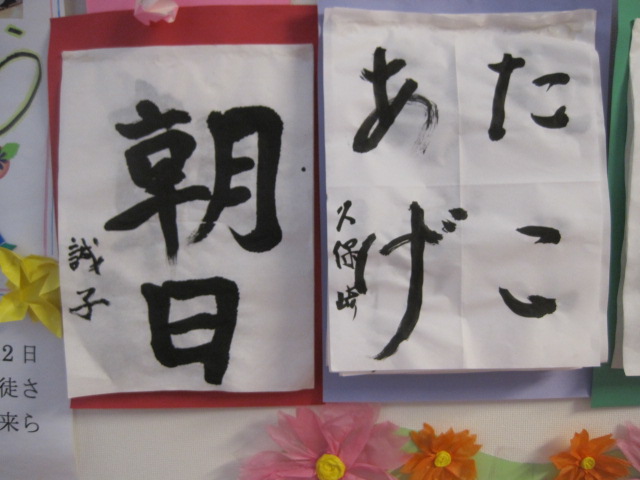 たこ
あげ
久保崎
朝日
誠子
2日
徒さ
来ら